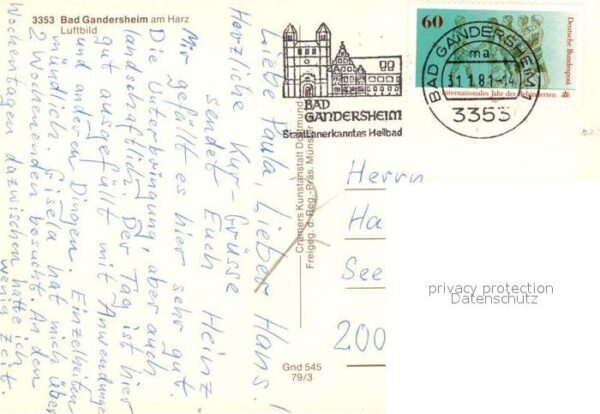 3353 Bad Gandersheim am Harz
Luftbild
Liebe Paula, Lieber Hans!
Herzliche Kur-Grüsse
sendet Euch Heinz.
Mir gefällt es hier sehr gut.
Die Unterbringung, aber auch
landschaftlich. Der Tag ist hier
gut ausgefüllt mit Anwendungen
und anderen Dingen. Einzelheiten
mündlich. Gisela hat mich über
2 Wochenenden besucht. An den
Wochentagen dazwischen hatte ich
wenig Zeit.
Cramers Kunstanstalt Dortmund
Freigeg. d. Reg.-Präs. Münster
Gnd 545
79/3
BAD
GANDERSHEIM
Staatl. anerkanntes Heilbad
BAD GANDERSHEIM
ma
31.1.81-14
3353
60
Deutsche Bundespost
Internationales Jahr der Behinderten
Herrn
Ha
See
200
privacy protection
Datenschutz